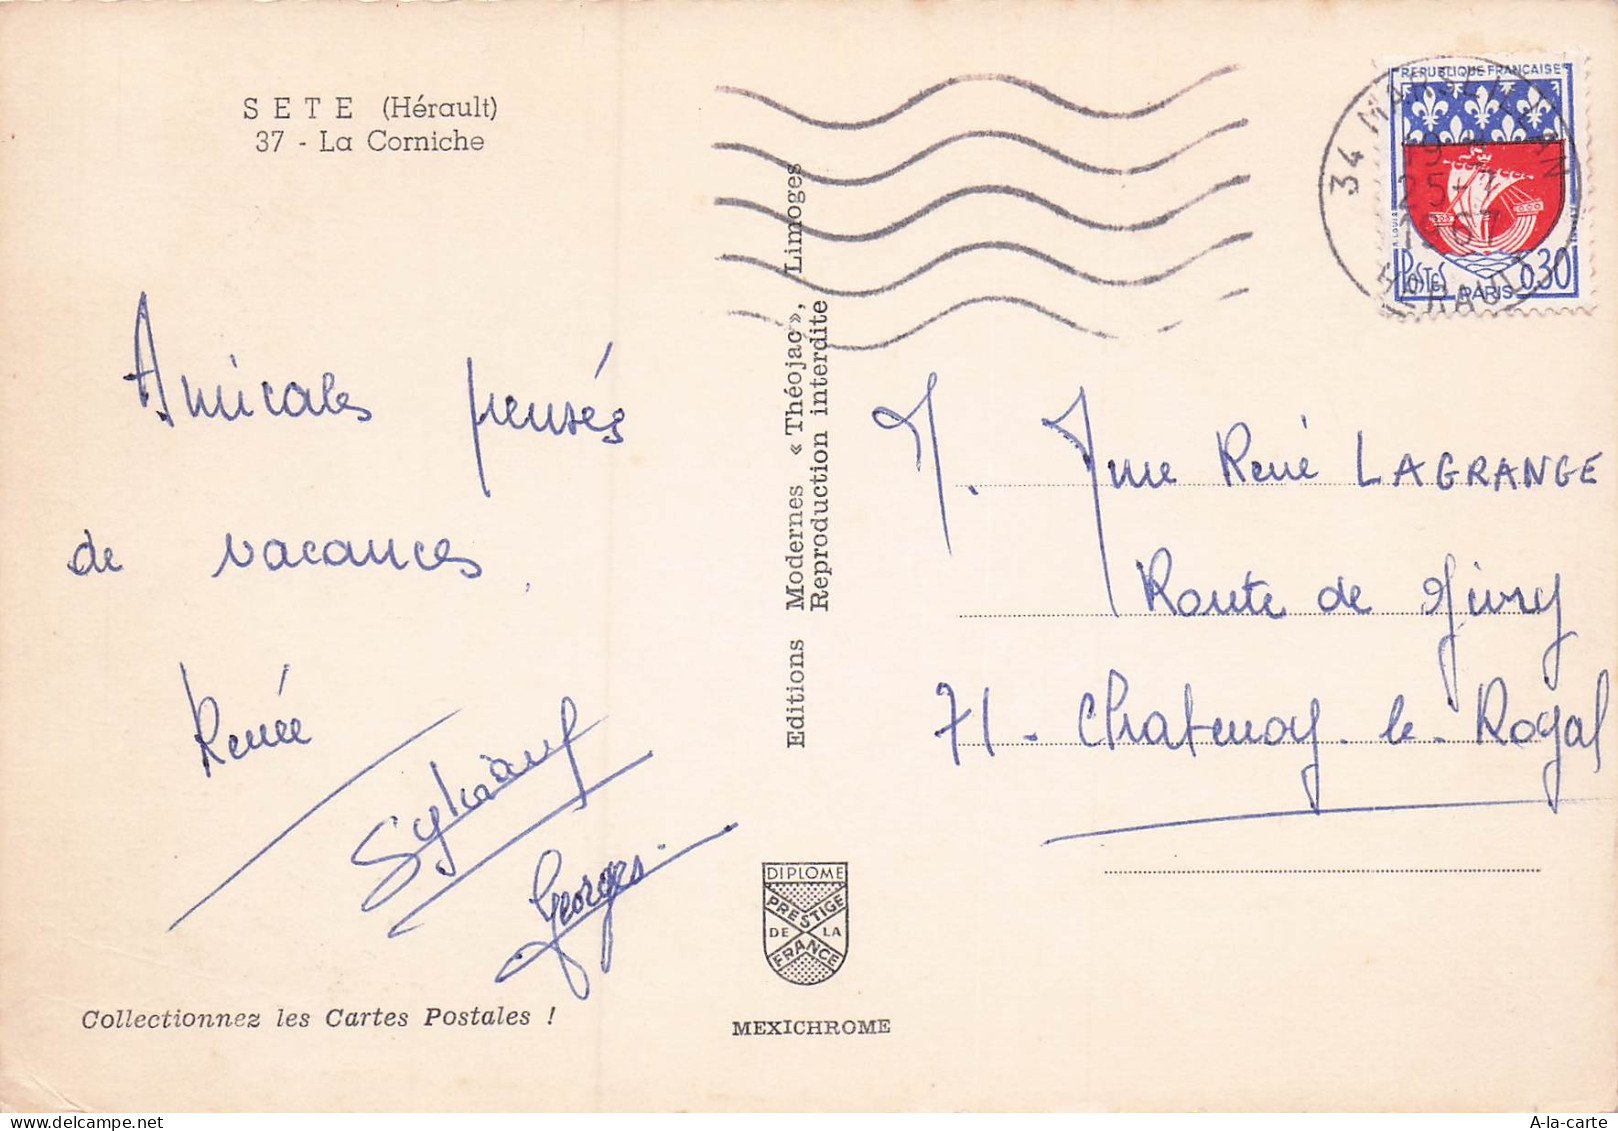 SETE (Hérault)
37 - La Corniche
Amicales pensés
de vacances.
Renée
Georges.
Collectionnez les Cartes Postales !
Editions Modernes « Théojac », Limoges
Reproduction interdite
DIPLOME
PRESTIGE
DE LA
FRANCE
MEXICHROME
REPUBLIQUE FRANCAISE
POSTES
PARIS
0,30
34 MARSEILLAN
19 H
25-7
1967
HERAULT
M. Mme René LAGRANGE
Route de Givry
71 - Chatenoy-le-Royal
A-la-carte